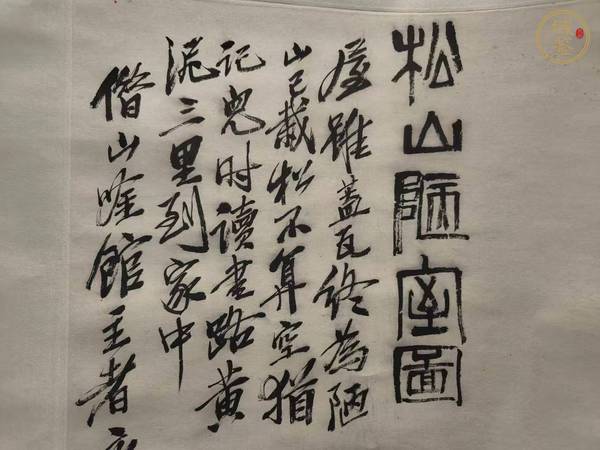 松山陋室圖
屋雖蓋瓦終為陋
山已栽松不算空猶
記兒時讀書路黃
泥三里到家中
借山唫館主者